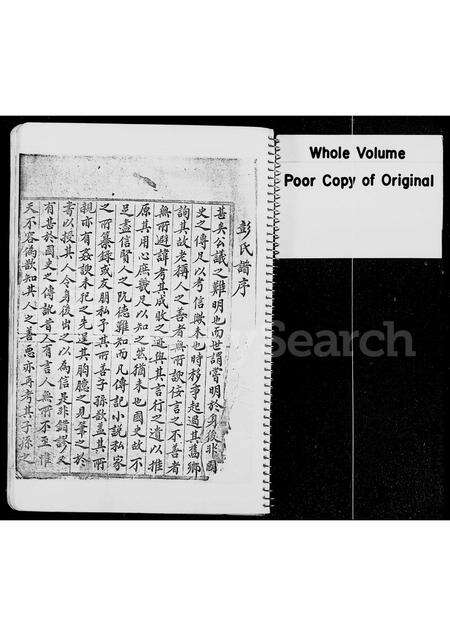 彭氏譜序
甚矣公議之難明也而世謂嘗明於身後非國
史之傳足以考信歟未也時移事起過其舊鄉
詢其故老稱人之善者無所諛佞言之不善者
無所避諱考其成敗之迹與其言行之遺以推
原其用心庶幾足以知之然猶未也國史故不
足盡信賢人之阨德難知而凡傳記小說私家
之所纂錄或友朋私于其所善子孫欲蓋其所
親亦有姦諛未死之先逞其胸臆之見筆之於
書以授其人令身後出之以為信是非錯謬又
有甚於國史之傳訛昔人有言人無所不至惟
天不容偽欲知其人之善惡亦再考其子孫之
Whole Volume
Poor Copy of Original
Search